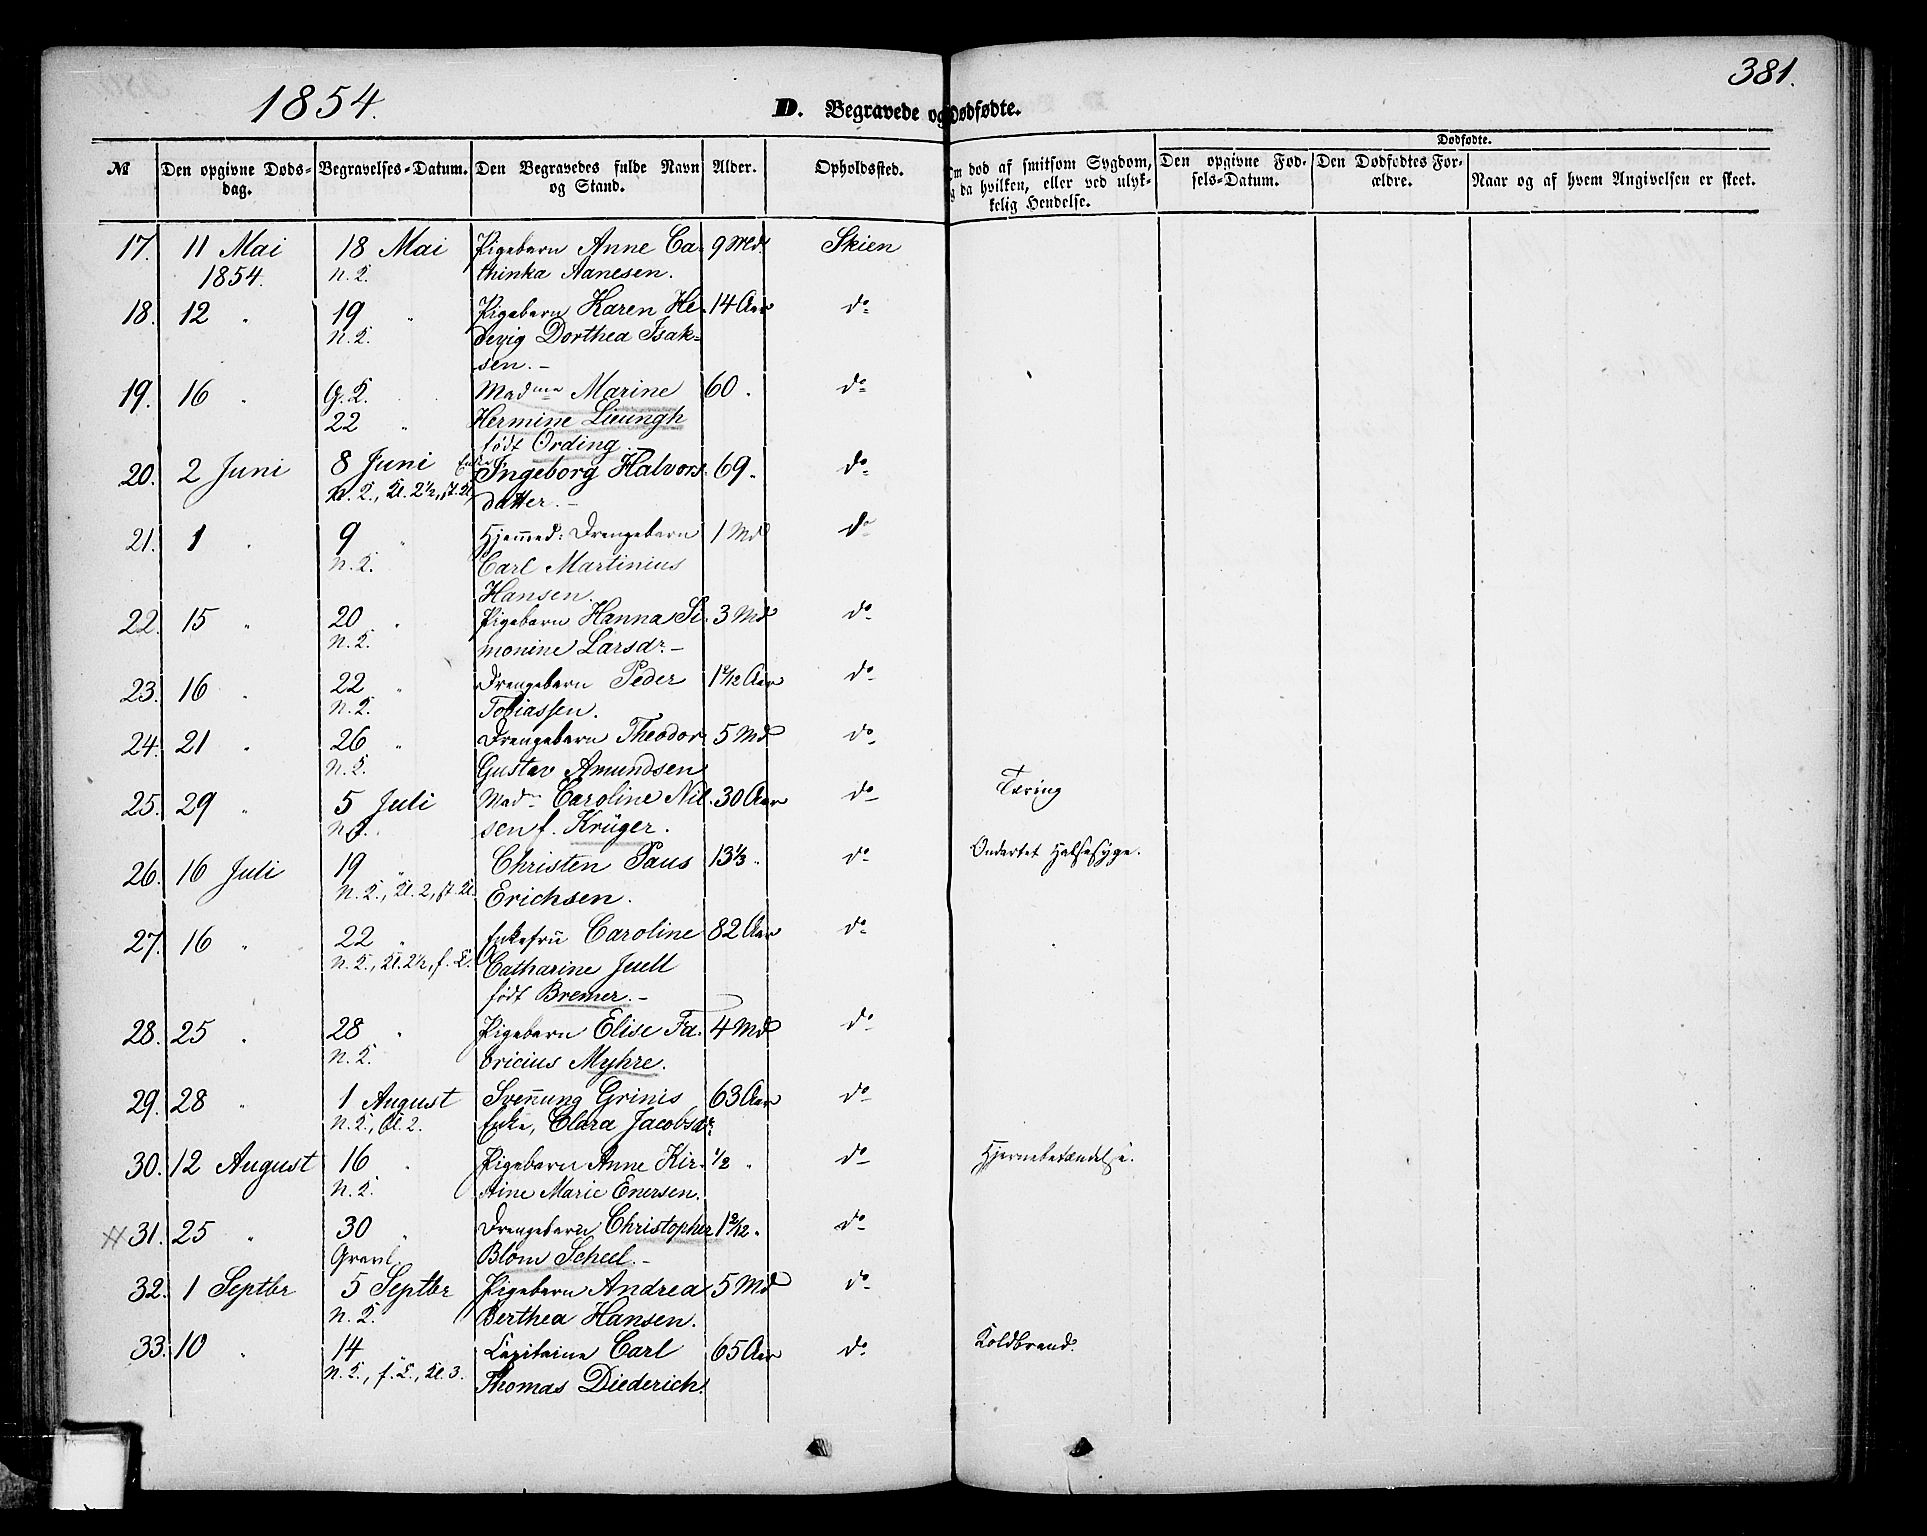 1854.
381.
D. Begravede og Dødfødte.
№ | Den opgivne Døds-dag. | Begravelses-Datum. | Den Begravedes fulde Navn og Stand. | Alder. | Opholdssted. | Om død af smitsom Sygdom, og da hvilken, eller ved ulyk-kelig Hendelse. | Dødfødte. | Den opgivne Fød-sels-Datum. | Den Dødfødtes For-ældre. | Naar og af hvem Angivelsen er skeet.
17. 11 Mai 18 Mai Pigebarn Anne Ca- 9 Md. Skien
1854. n. K. thinka Aanesen.
18. 12 " 19 " Pigebarn Karen He- 14 Aar do
n. K. devig Dorthea Isak-
sen.-
19. 16 " G. K. Madme Marine 60 " do
22 " Hermine Lieungh
født Ording.
20. 2 Juni 8 Juni Enke Ingeborg Halvors- 69 " do
n. K., Kl. 2½, datter.-
21. 1 " 9 " Hjemmed: Drengebarn 1 Md do
n. K. Carl Martinius
Hansen.
22. 15 " 20 " Pigebarn Hanna Si- 3 Md do
n. K. monine Larsdr.-
23. 16 " 22 " Drengebarn Peder Aar do
n. K. Tobiassen.
24. 21 " 26 " Drengebarn Theodor 5 Md do
n. K. Gustav Amundsen
25. 29 " 5 Juli Madm Caroline Nil- 30 Aar do Tæring
n. K. sen f. Krüger.
26. 16 Juli 19 " Christen Paus 13⅓ " do Ondartet Halssyge.
n. K., Kl. 2, Erichsen.
27. 16 " 22 " Enkefru Caroline 82 Aar do
n. K., Kl. 2½, Catharine Juell
født Bremer.-
28. 25 " 28 " Pigebarn Elise Fa- 4 Md do
n. K. bricius Myhre.
29. 28 " 1 August Svennung Grinis 63 Aar do
n. K., Kl. 2. Enke, Clara Jacobsdr.
30. 12 August 16 " Pigebarn Anne Kir- ½ " do Hjernebetændelse.
n. K. stine Marie Enersen.
31. 25 " 30 " Drengebarn Christopher 1 9/12 " do
Gravl. Blom Scheel.-
32. 1 Septbr 5 Septbr Pigebarn Andrea 5 Md do
n. K. Berthea Hansen.
33. 10 " 14 " Capitaine Carl 65 Aar do Koldbrand.
n. K., Kl. 3. Thomas Diederich.